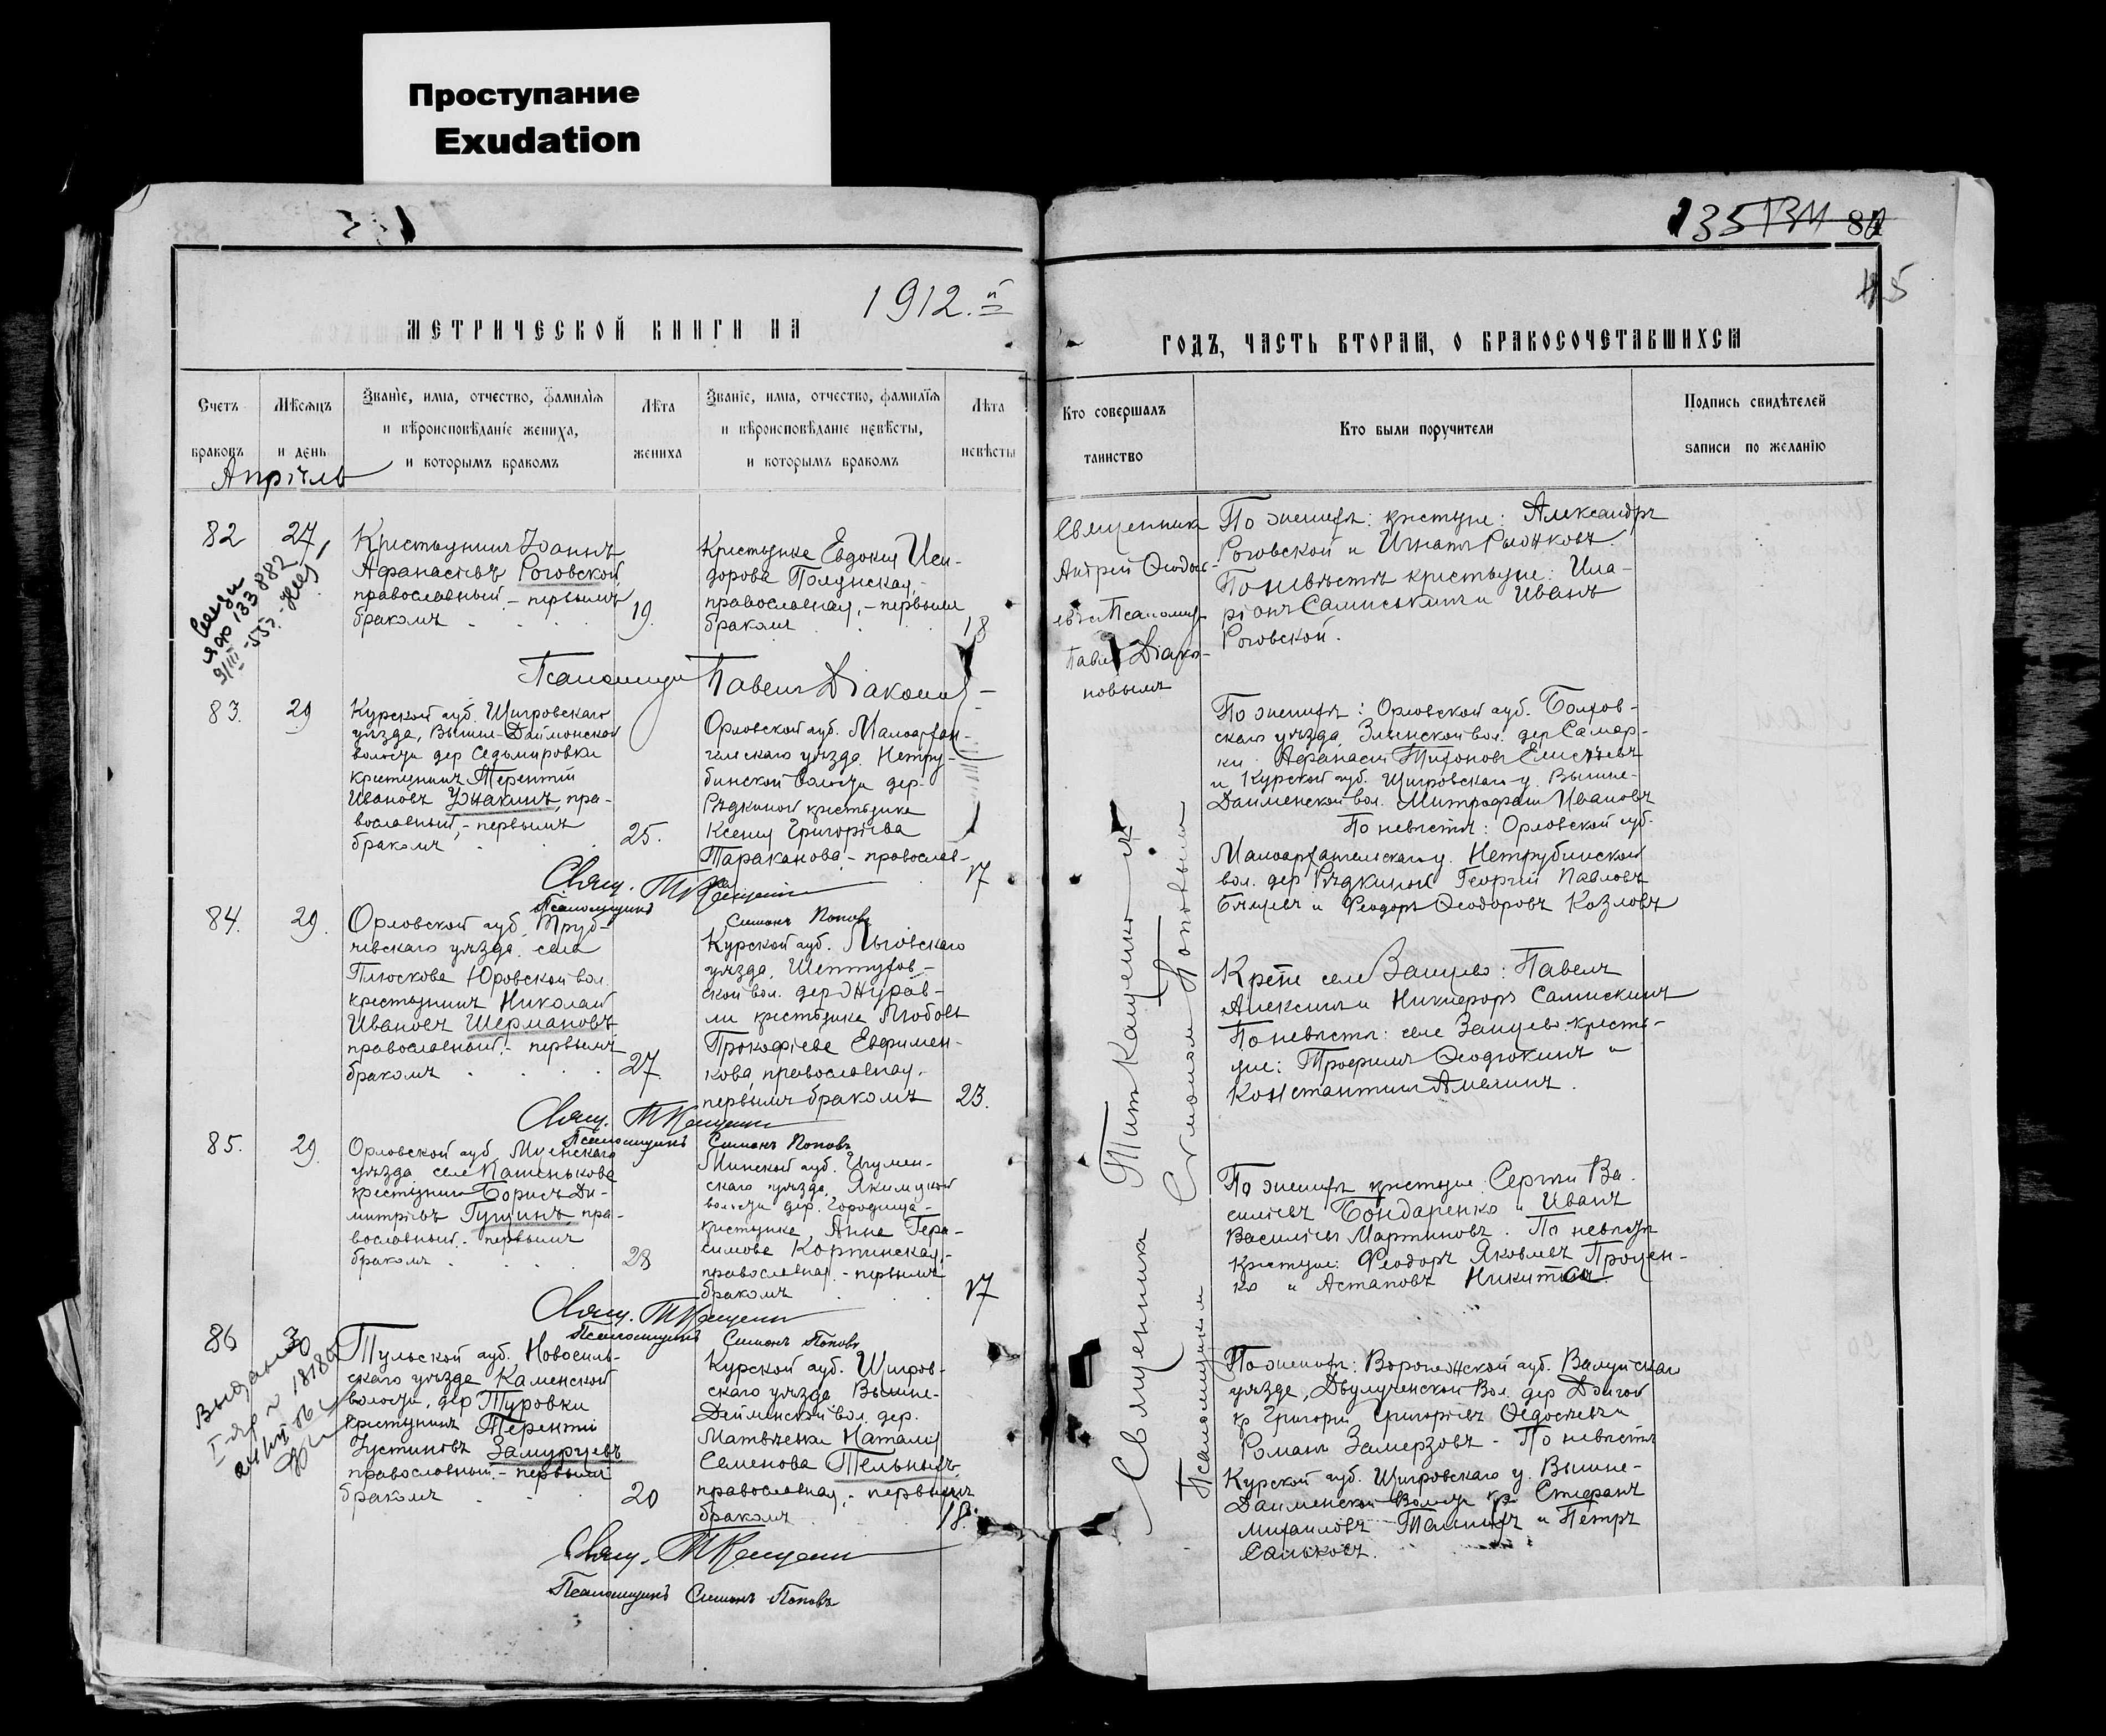 Проступание
Exudation
135
1912.й
МЕТРИЧЕСКОЙ КНИГИ НА
ГОДЪ, ЧАСТЬ ВТОРАЯ, О БРАКОСОЧЕТАВШИХСЯ
Счетъ
браковъ
Мѣсяцъ
и день
Званіе, имя, отчество, фамилія
и вѣроисповѣданіе жениха,
и которымъ бракомъ
Лѣта
жениха
Званіе, имя, отчество, фамилія
и вѣроисповѣданіе невѣсты,
и которымъ бракомъ
Лѣта
невѣсты
Кто совершалъ
таинство
Кто были поручители
Подпись свидѣтелей
записи по желанію
Апрѣль
82
27
Крестьянинъ Іоаннъ
Афанасіевъ Роговской
православный, - первымъ
бракомъ
19.
Крестьянка Евдокія Иси-
дорова Полунская,
православная, - первымъ
бракомъ
18
Псаломщикъ Павелъ Діаконовъ
Священникъ
Андрей Ѳеодось-
евъ и Псаломщ.
Павелъ Діако-
новымъ
По женихѣ: крестьяне: Александръ
Роговской и Игнатъ Рыжковъ.
По невѣстѣ крестьяне: Ила-
ріонъ Самиськинъ и Иванъ
Роговской.
83.
29
Курской губ. Щигровскаго
уѣзда, Вышне-Дайменской
волости дер Седьмировки
крестьянинъ Терентій
Ивановъ Ушакинъ, пра-
вославный, - первымъ
бракомъ
25.
Орловской губ. Малоархан-
гельскаго уѣзда Нетру-
бинской волости дер.
Рѣдкиной крестьянка
Ксенія Григоріева
Тараканова, - православ-
17
Свящ. Т. Кащенко
Псаломщикъ Симонъ Поповъ
По женихѣ: Орловской губ. Болхов-
скаго уѣзда Злынской вол. дер Самар-
ки Афанасій Тихоновъ Елисѣевъ
и Курской губ. Щигровскаго у. Вышне-
Дайменской вол. Митрофанъ Ивановъ
По невѣстѣ: Орловской губ.
Малоархангельскаго у. Нетрубинской
вол. дер Рѣдкиной Георгій Павловъ
и Ѳеодоръ Ѳеодоровъ Козловъ
84.
29.
Орловской губ. Труб-
чевскаго уѣзда села
Плюскова Юровской вол.
крестьянинъ Николай
Ивановъ Шермановъ
православный, - первымъ
бракомъ
27.
Курской губ. Льговскаго
уѣзда, Шептухов-
ской вол. дер Журав-
ли крестьянка Любовь
Прокофіева Евфимен-
кова, православная,
первымъ бракомъ
23.
Свящ. Т. Кащенко
Псаломщикъ Симонъ Поповъ
Крестьяне села Зайцево: Павелъ
Алексинъ и Никифоръ Самискинъ
По невѣстѣ: села Зайцево кресть-
яне: Трофимъ Ѳедюкинъ и
Константинъ Амелинъ.
85.
29.
Орловской губ. Мценскаго
уѣзда села Пашенькова
крестьянинъ Борисъ Ди-
митріевъ Гущинъ, пра-
вославный, первымъ
бракомъ
28
Минской губ. Игумен-
скаго уѣзда,
волости дер. Городища
крестьянка Анна Гера-
симова Корпинская,
православная, - первымъ
бракомъ
17
Свящ. Т. Кащенко
Псаломщикъ Симонъ Поповъ
По женихѣ крестьяне: Сергій Ва-
силіевъ Бондаренко и Иванъ
Василіевъ Мартиновъ. По невѣстѣ
крестьяне: Ѳеодоръ Яковлевъ Процен-
ко и Астаповъ Никита
86
30
Тульской губ. Новосиль-
скаго уѣзда Каменской
волости, дер Туровки
крестьянинъ Терентій
Іустиновъ Замуруевъ
православный, - первымъ
бракомъ
20
Курской губ. Щигров-
скаго уѣзда Вышне-
Дайменской вол. дер.
Матвѣевки Наталія
Семенова Тельныхъ,
православная, - первымъ
бракомъ
18.
Свящ. Т. Кащенко
Псаломщикъ Симонъ Поповъ
По женихѣ: Воронежской губ. Валуйскаго
уѣзда, Двулученской вол. дер Долгой
кр Григорій Григоріевъ Ѳедосѣевъ и
Романъ Замерзовъ - По невѣстѣ
Курской губ. Щигровскаго у. Вышне-
Дайменской волости кр Стефанъ
Михаиловъ и Петръ
Сальковъ.
Священникъ Титъ Кащенко съ
Псаломщикомъ Симономъ Поповымъ